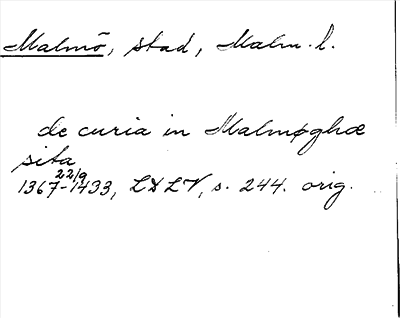 Malmö, stad, Malm. l.
de curia in Malmøghæ
sita
22/9
1367-1433, LDLV, s. 244. orig.